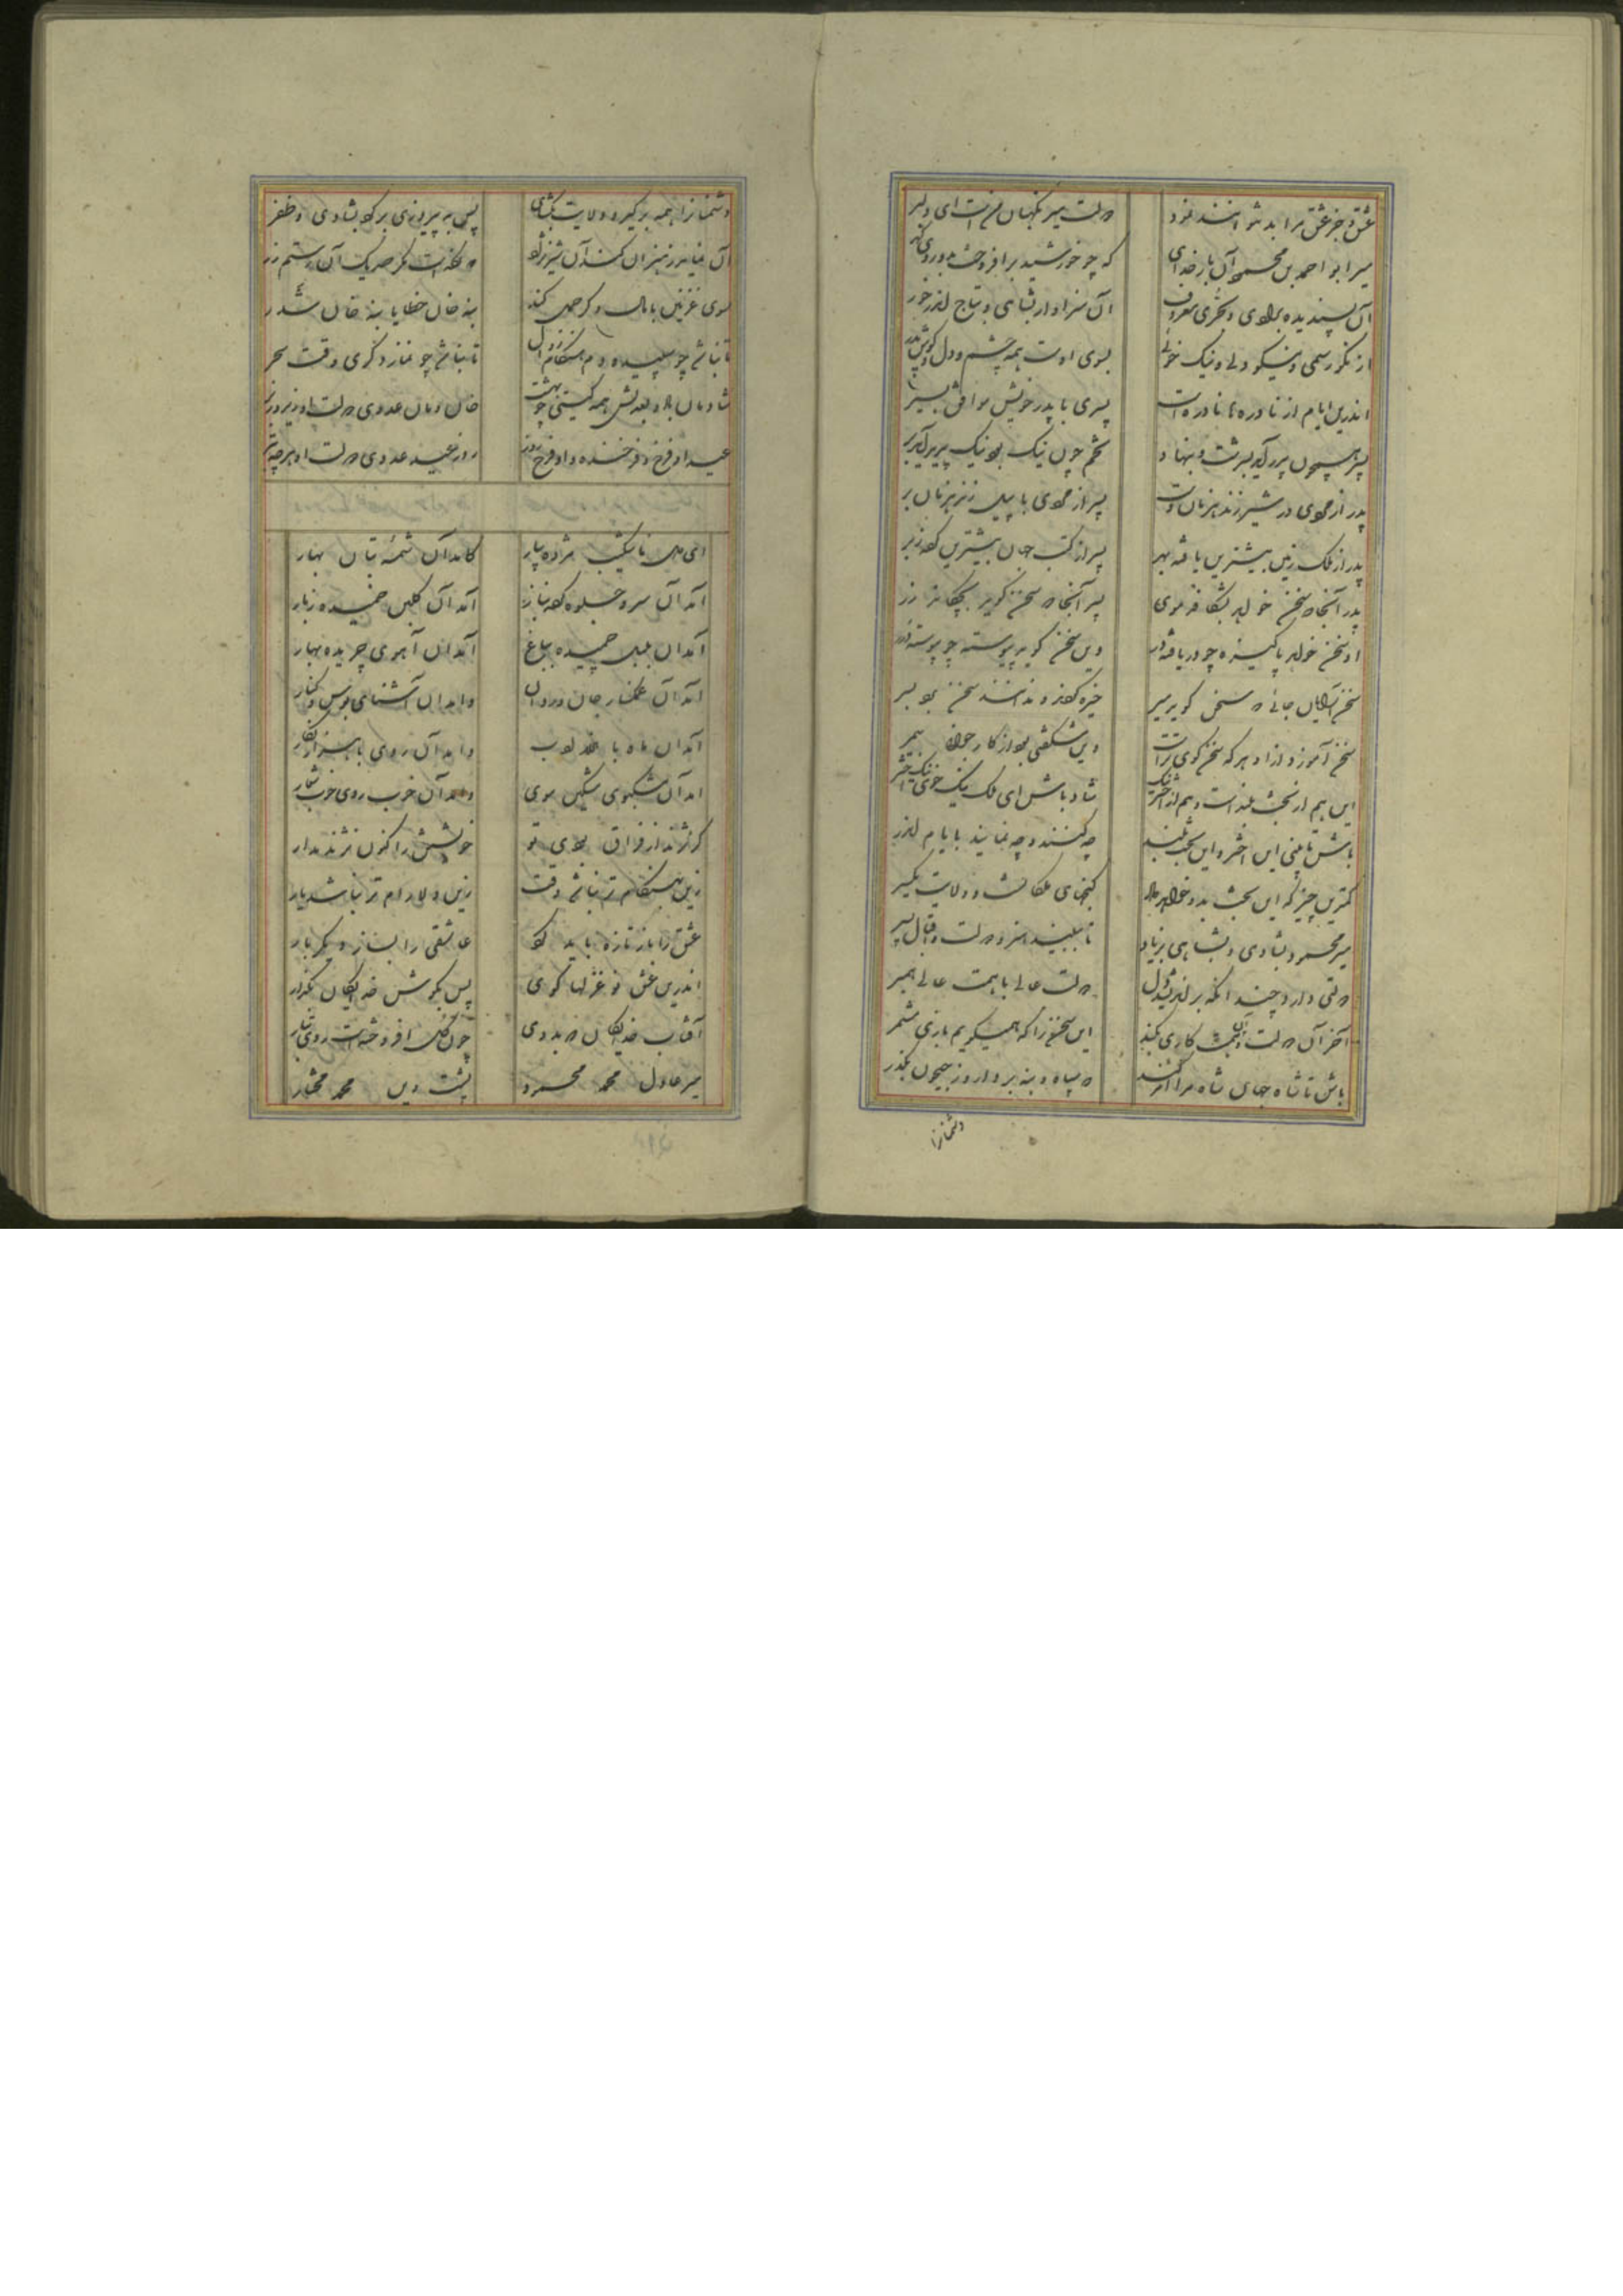 عشق و جز عشق مرا بد نتوانند نمود
دولت میر نگهبان من است ای دلبر
میر ابو احمد بن محمود آن بار خدای
که چو خورشید برافروخت
آن پسندیده بمردی و بحری معروف
آن سزاوار بشاهی و بتاج اندر خور
از نکو رسمی و نیکو دلی و نیک خوئی
بسوی اوست همه چشم و دل و گوش پدر
اندرین ایام از نادره ها نادره است
پسری با پدر خویش موافق بسیر
پسر همچون پدر آید بسرشت و بنهاد
تخم چون نیک بود نیک پدید آید بر
پدر از مردی در شیر زند هر زمان دست
پسر از مردی با پیل زند هر زمان بر
پدر از ملک زمین بیشترین یافته بهر
پسر از کتب جهان بیشترین کرده ز بر
پدر آنجا که سخن خواهد بشکافد موی
پسر آنجا که سخن گوید بچکاند زر
او سخن خواهد پاکیزه چو دریافته در
وین سخن گوید پیوسته چو پیوسته درر
خیره گردند و ندانند سخن برد بسر
سخن آموزد ازو هر که سخن گوی تر است
وین شگفتی بود از کار جوان
این هم از بخت بلند است و هم از اختر نیک
شاد باش ای ملک نیک خوی نیک اختر
باش تا بینی این اختر و این بخت بلند
چه کنند و چه نمایند بایام اندر
کمترین چیز که این بخت بدو خواهد داد
گنجهای ملکانست و ولایت یکسر
میر محمود بشادی و بشاهی بزیاد
تا ببیند هنر و دولت و اقبال پسر
دولتی دارد چندانکه براندیشد دل
دولت عالی با همت عالی همبر
آخر آن دولت و آن همت کاری بکند
این سخن را که همیگویم بازی مشمر
باش تا شاه جهان شاه مرا امر کند
که سپاه و بنه بردار و ز جیحون بگذر
دشمنانرا
دشمنانرا همه برگیر و ولایت بگشای
پس به پیروزی برگرد بشادی و ظفر
آن نماید ز هنر زان کند آن شیر نژاد
که نکردست مگر صد یک آن رستم زر
سوی غزنین با مال و گرامی کند
بنه خان خطا یا بنه خان تتر
تا نباشد چو سپیده دم هنگام زوال
تا نباشد چو نماز دگری وقت سحر
شادمان باد و بعدلش همه گیتی چو بهشت
خان و مان عدوی دولت او زیر و زبر
عید او فرخ و فرخنده و او فرخ روز
روز عید عدوی دولت او هر چه بتر
ای دل ناشکیب مژده بیار
کامد آن شمسه بتان بهار
آمد آن سرو جلوه کرده بناز
آمد آن گلبن خمیده ز بار
آمد آن بلبل چمیده بباغ
آمد آن آهوی چریده بهار
آمد آن غمگسار جان و روان
وامد آن آشنای بوس و کنار
آمد آن ماه با هزار ادب
وامد آن روی با هزار نگار
آمد آن مشکبوی مشکین موی
وامد آن خوب روی خوب شمار
گر نژند از فراق بودی تو
خویشتن را کنون نژند مدار
زین بهنگام تر نباشد وقت
زین دلارام تر نباشد یار
عشق را باز تازه باید کرد
عاشقی را بساز دیگر بار
اندرین عشق نو غزلها گوی
پس بگوش خدایگان بگذار
آفتاب خدایگان که بدوی
چون گل افروخته است روی تبار
میر عادل محمد محمود
پشت دین محمد مختار